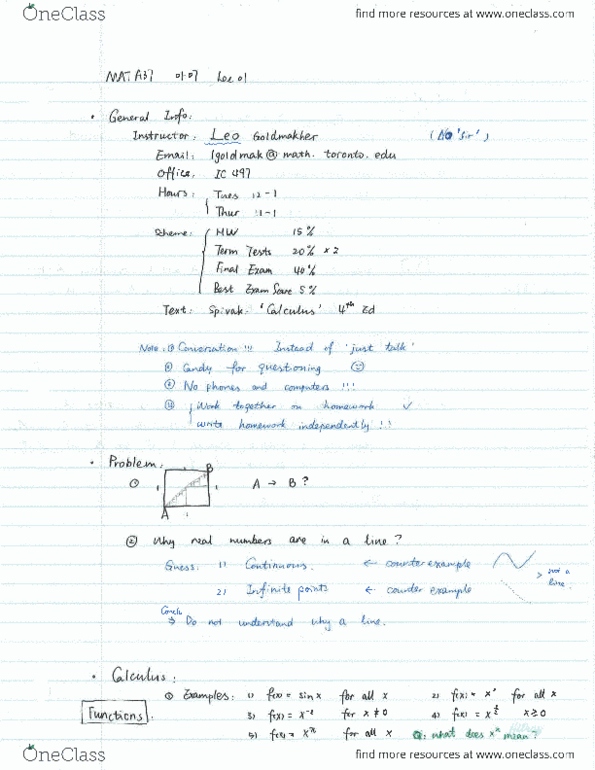 OneClass
find more resources at www.oneclass.com
MAT A37 01-07 Lec 01
• General Info:
Instructor: Leo Goldmakher (No 'Sir')
Email: lgoldmak@math.toronto.edu
Office: IC 497
Hours: Tues 12-1
Thur 11-1
Scheme: HW 15%
Term Tests 20% × 2
Final Exam 40%
Best Exam Score 5%
Text: Spivak. 'Calculus' 4th Ed
Note: ① Conversation!!! Instead of 'just talk'
② Candy for questioning
③ No phones and computers!!!
④ Work together on homework ✓
write homework independently!!!
• Problem:
① A B 1 1 1 A → B?
② Why real numbers are in a line?
Guess: 1) Continuous. ← counter example
2) Infinite points ← counter example
> not a line.
⇒ Do not understand why a line.
• Calculus:
① Examples: 1) f(x) = sin x for all x 2) for all x
Functions. 3) f(x) = x⁻² for x ≠ 0 4) x ≥ 0
5) for all x Q: what does mean?
OneClass
find more resources at www.oneclass.com